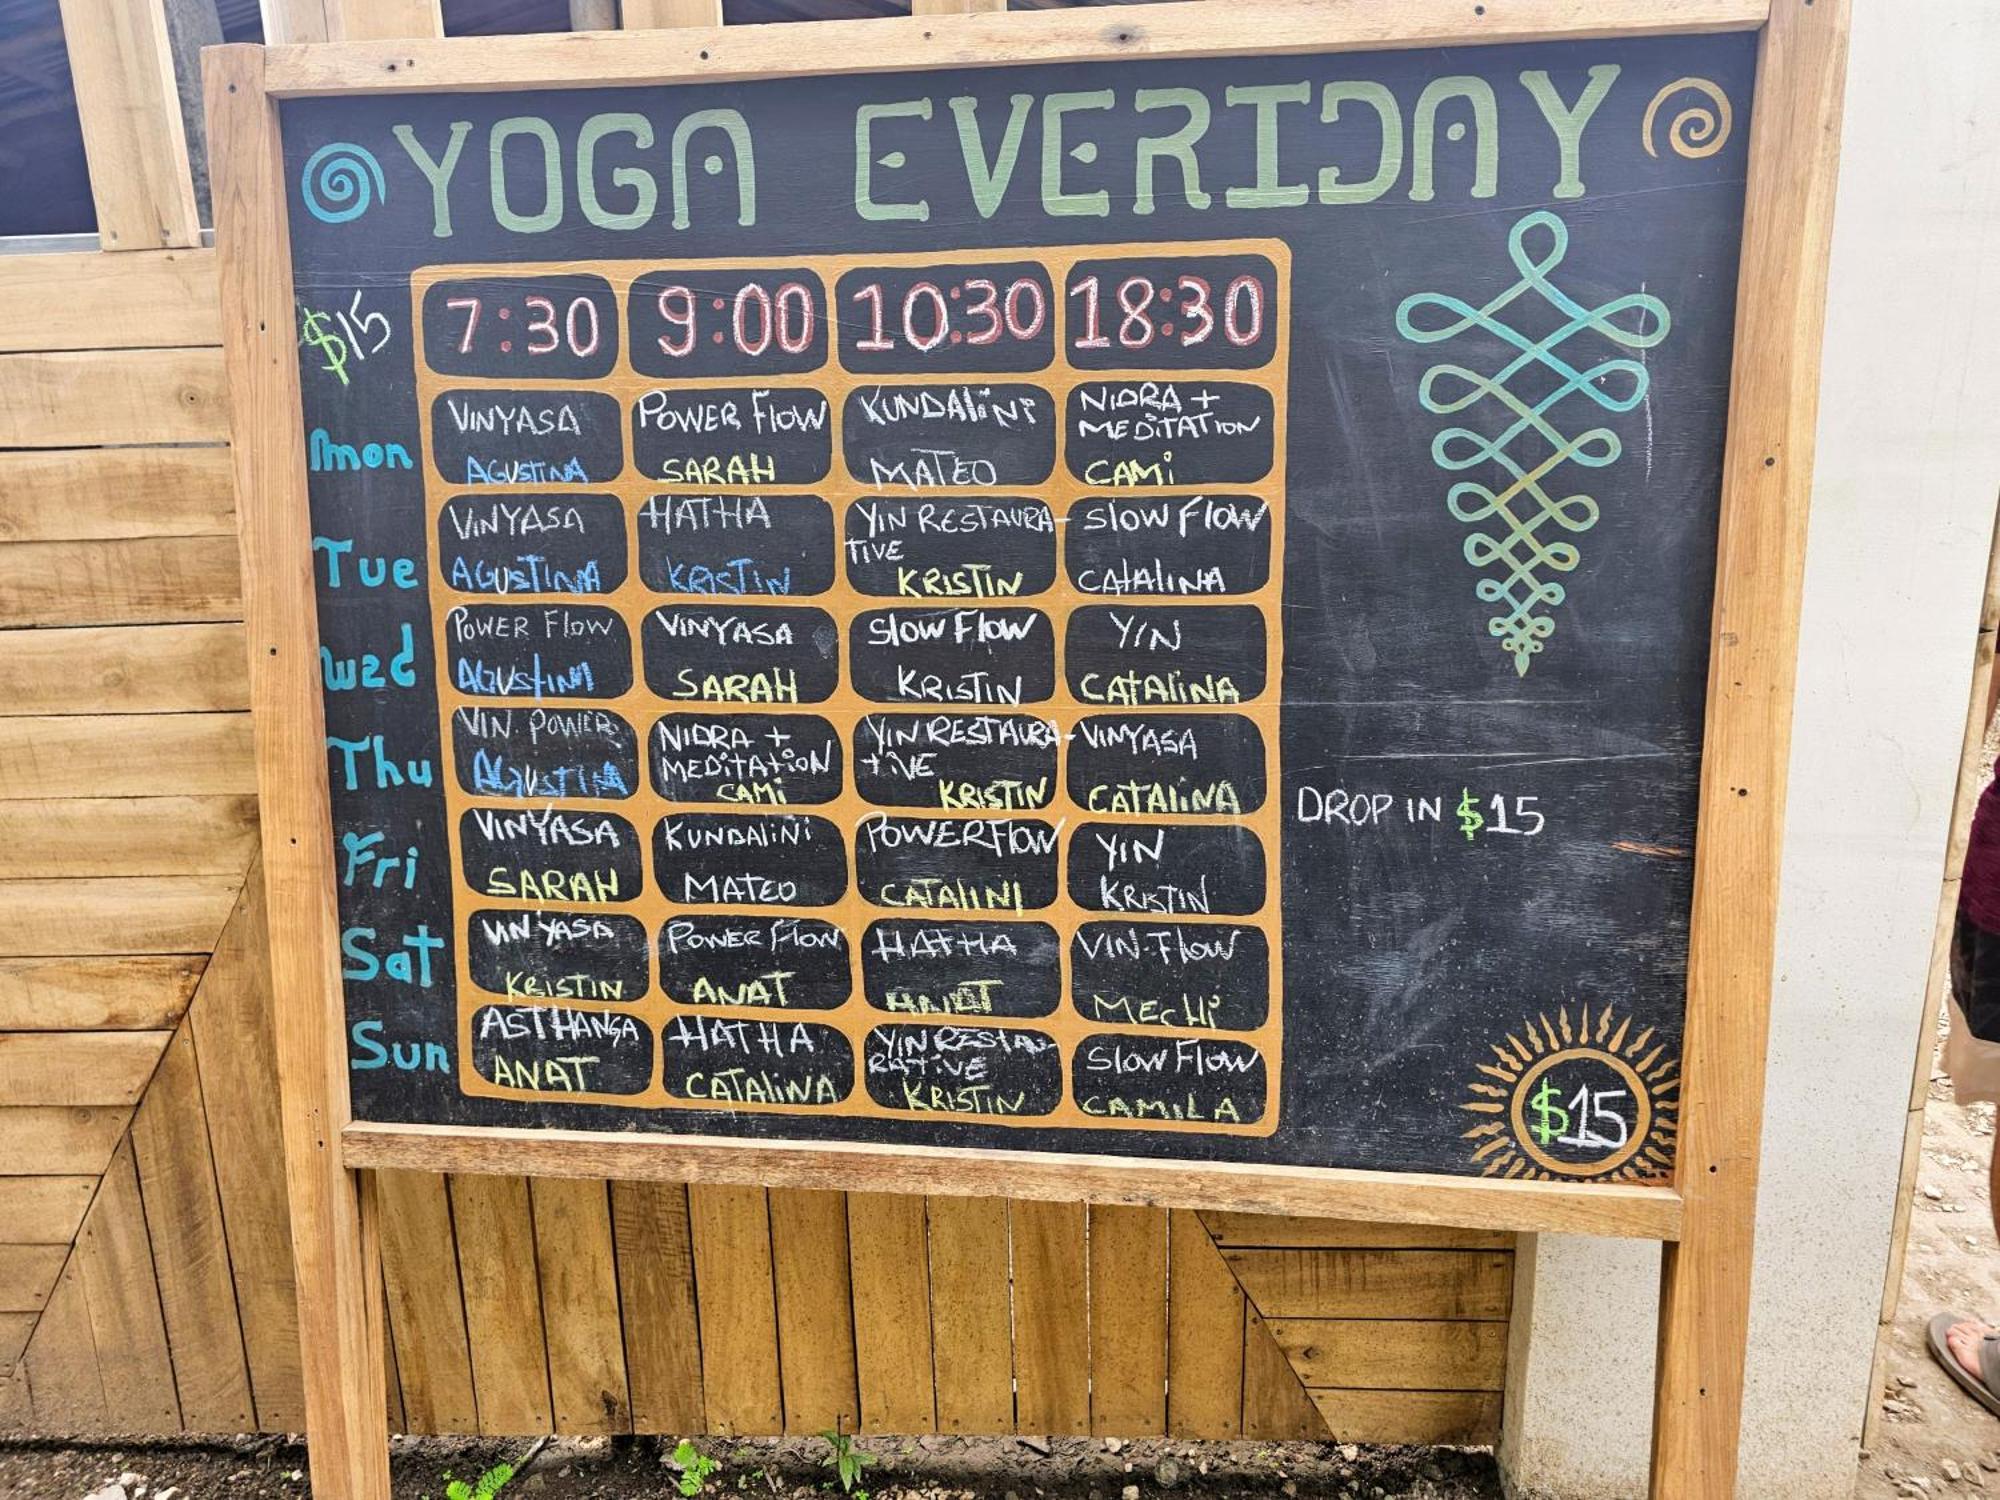 YOGA EVERIDAY
$15 7:30 9:00 10:30 18:30
mon
VINYASA
AGUSTINA
POWER FLOW
SARAH
KUNDALiNi
MATEO
NIDRA +
MEDiTATiON
CAMi
Tue
VINYASA
AGUSTINA
HATHA
KRISTIN
YIN RESTAURA-
TIVE
KRISTIN
SLOW FLOW
CATALINA
wed
POWER FLOW
AGUSTINA
VINYASA
SARAH
SLOW FLOW
KRISTIN
YIN
CATALiNA
Thu
VIN. POWER
AGUSTINA
NIDRA +
MEDiTATiON
CAMi
YIN RESTAURA-
TIVE
KRISTIN
VINYASA
CATALiNA
Fri
VINYASA
SARAH
KUNDALiNi
MATEO
POWER FLOW
CATALINI
YIN
KRISTIN
Sat
VINYASA
KRISTIN
POWER FLOW
ANAT
HATHA
ANAT
VIN. FLOW
MECHi
Sun
ASTHANGA
ANAT
HATHA
CATALiNA
YIN RESTAU-
RATiVE
KRISTIN
SLOW FLOW
CAMILA
DROP IN $15
$15